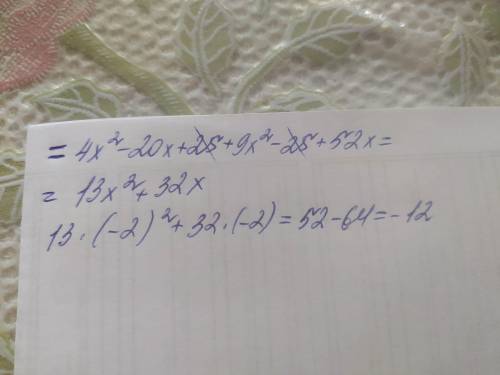 = 4x² - 20x + 25 + 9x² - 25 + 52x =
= 13x² + 32x
13 · (-2)² + 32 · (-2) = 52 - 64 = -12